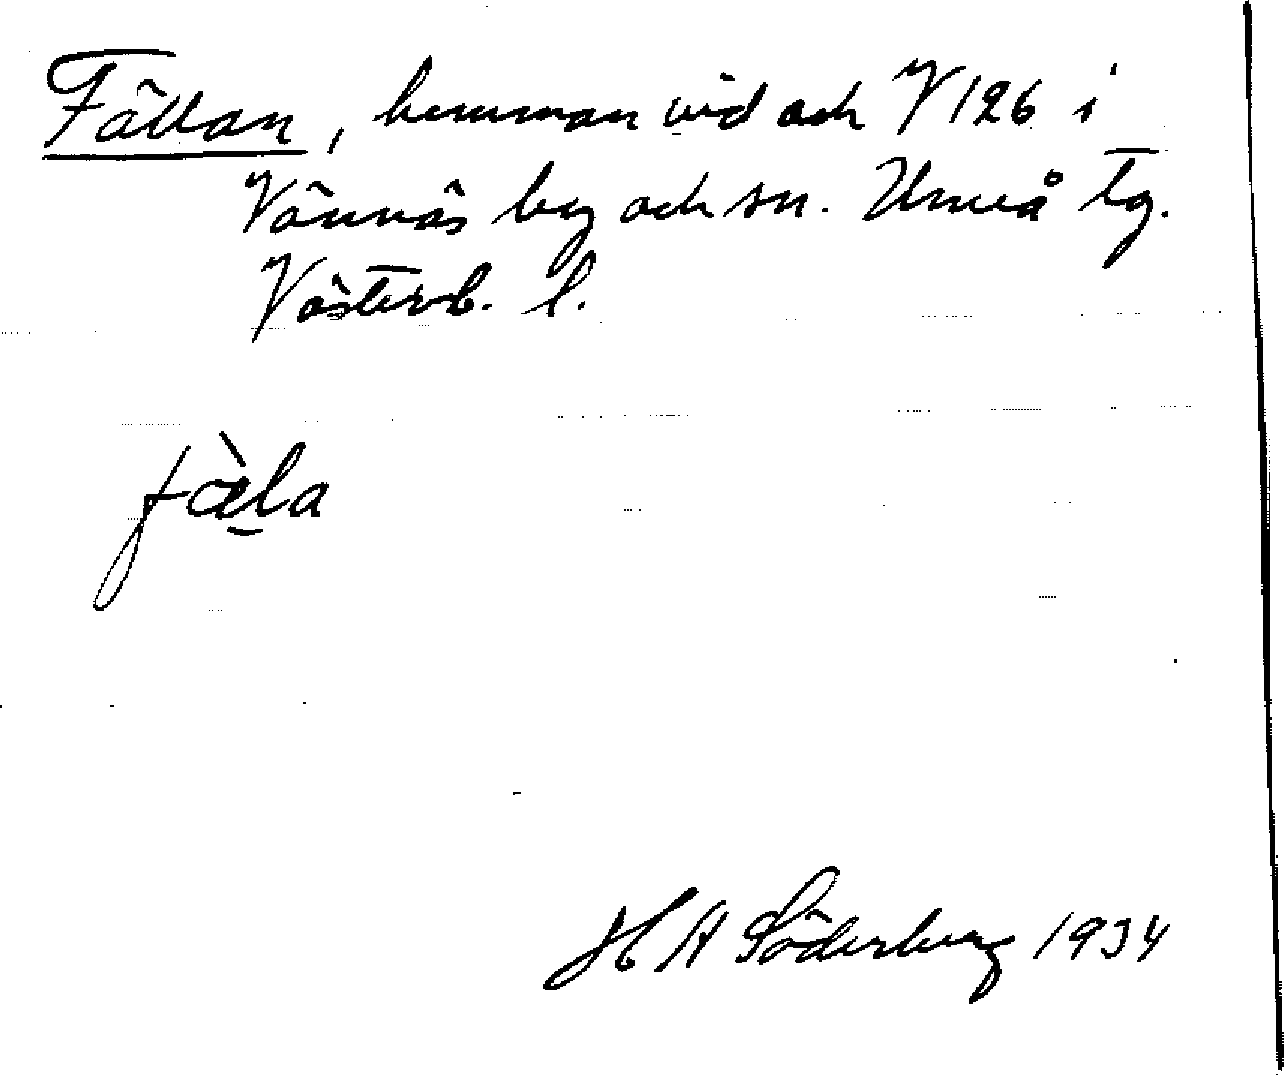 Fällan, hemman vid och V 126 i
Vännäs by och sn. Umeå tg.
Västerb. l.
fæ̀la
H A Söderberg 1934